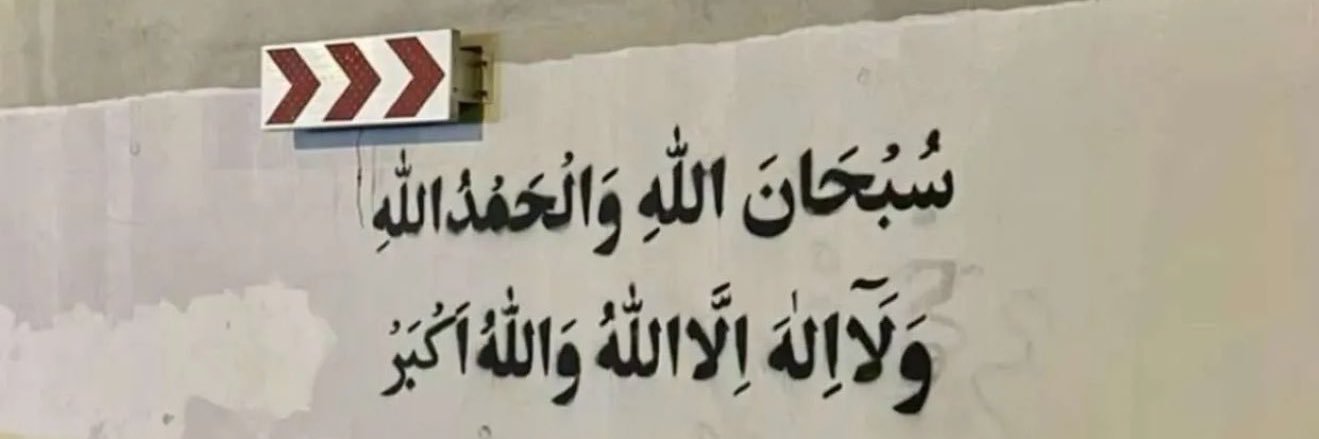 سُبْحَانَ اللّٰهِ وَالْحَمْدُاللّٰهِ
وَلَآاِلٰهَ اِلَّااللّٰهُ وَاللّٰهُ اَكْبَرُ